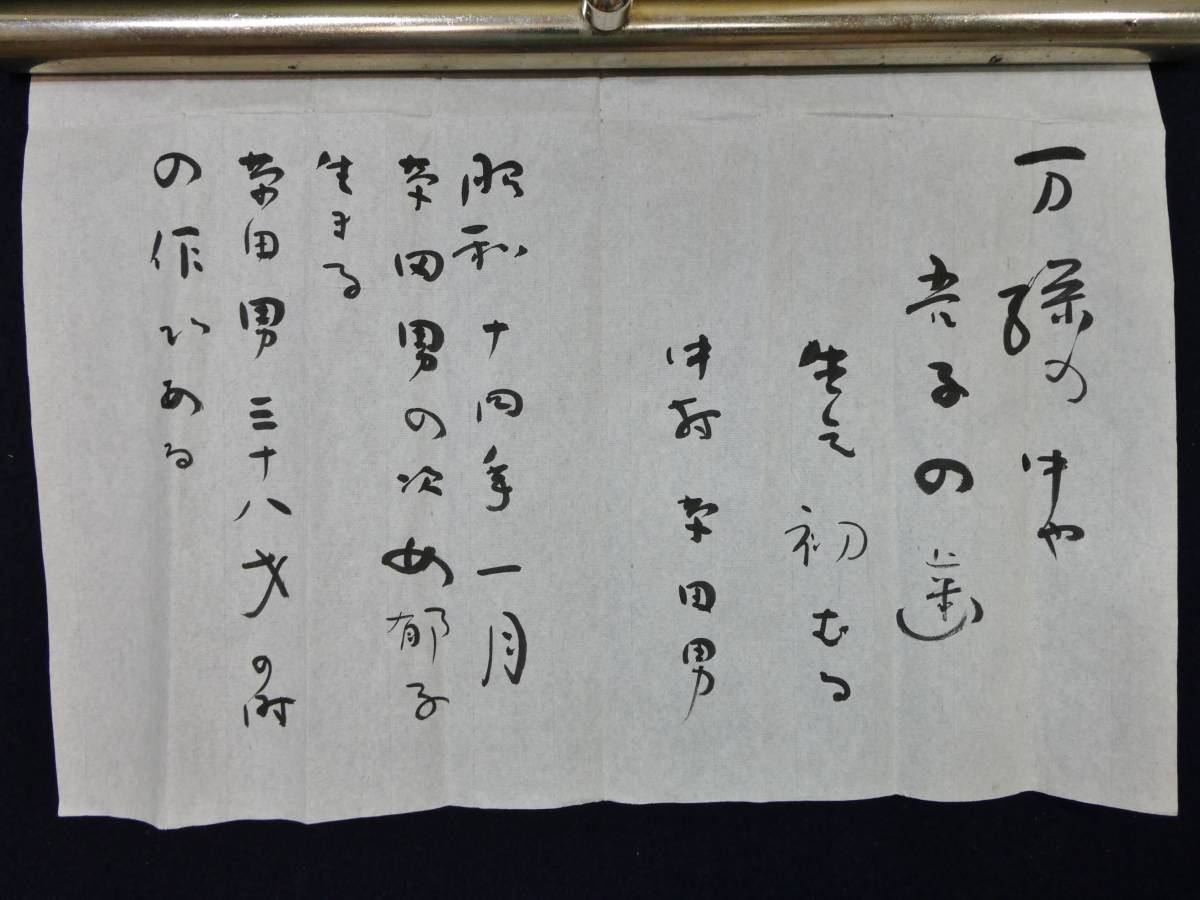 万緑の中や
吾子の歯
生え初むる
中村草田男
昭和十四年一月
草田男の次女郁子
生まる
草田男三十八才の時
の作である